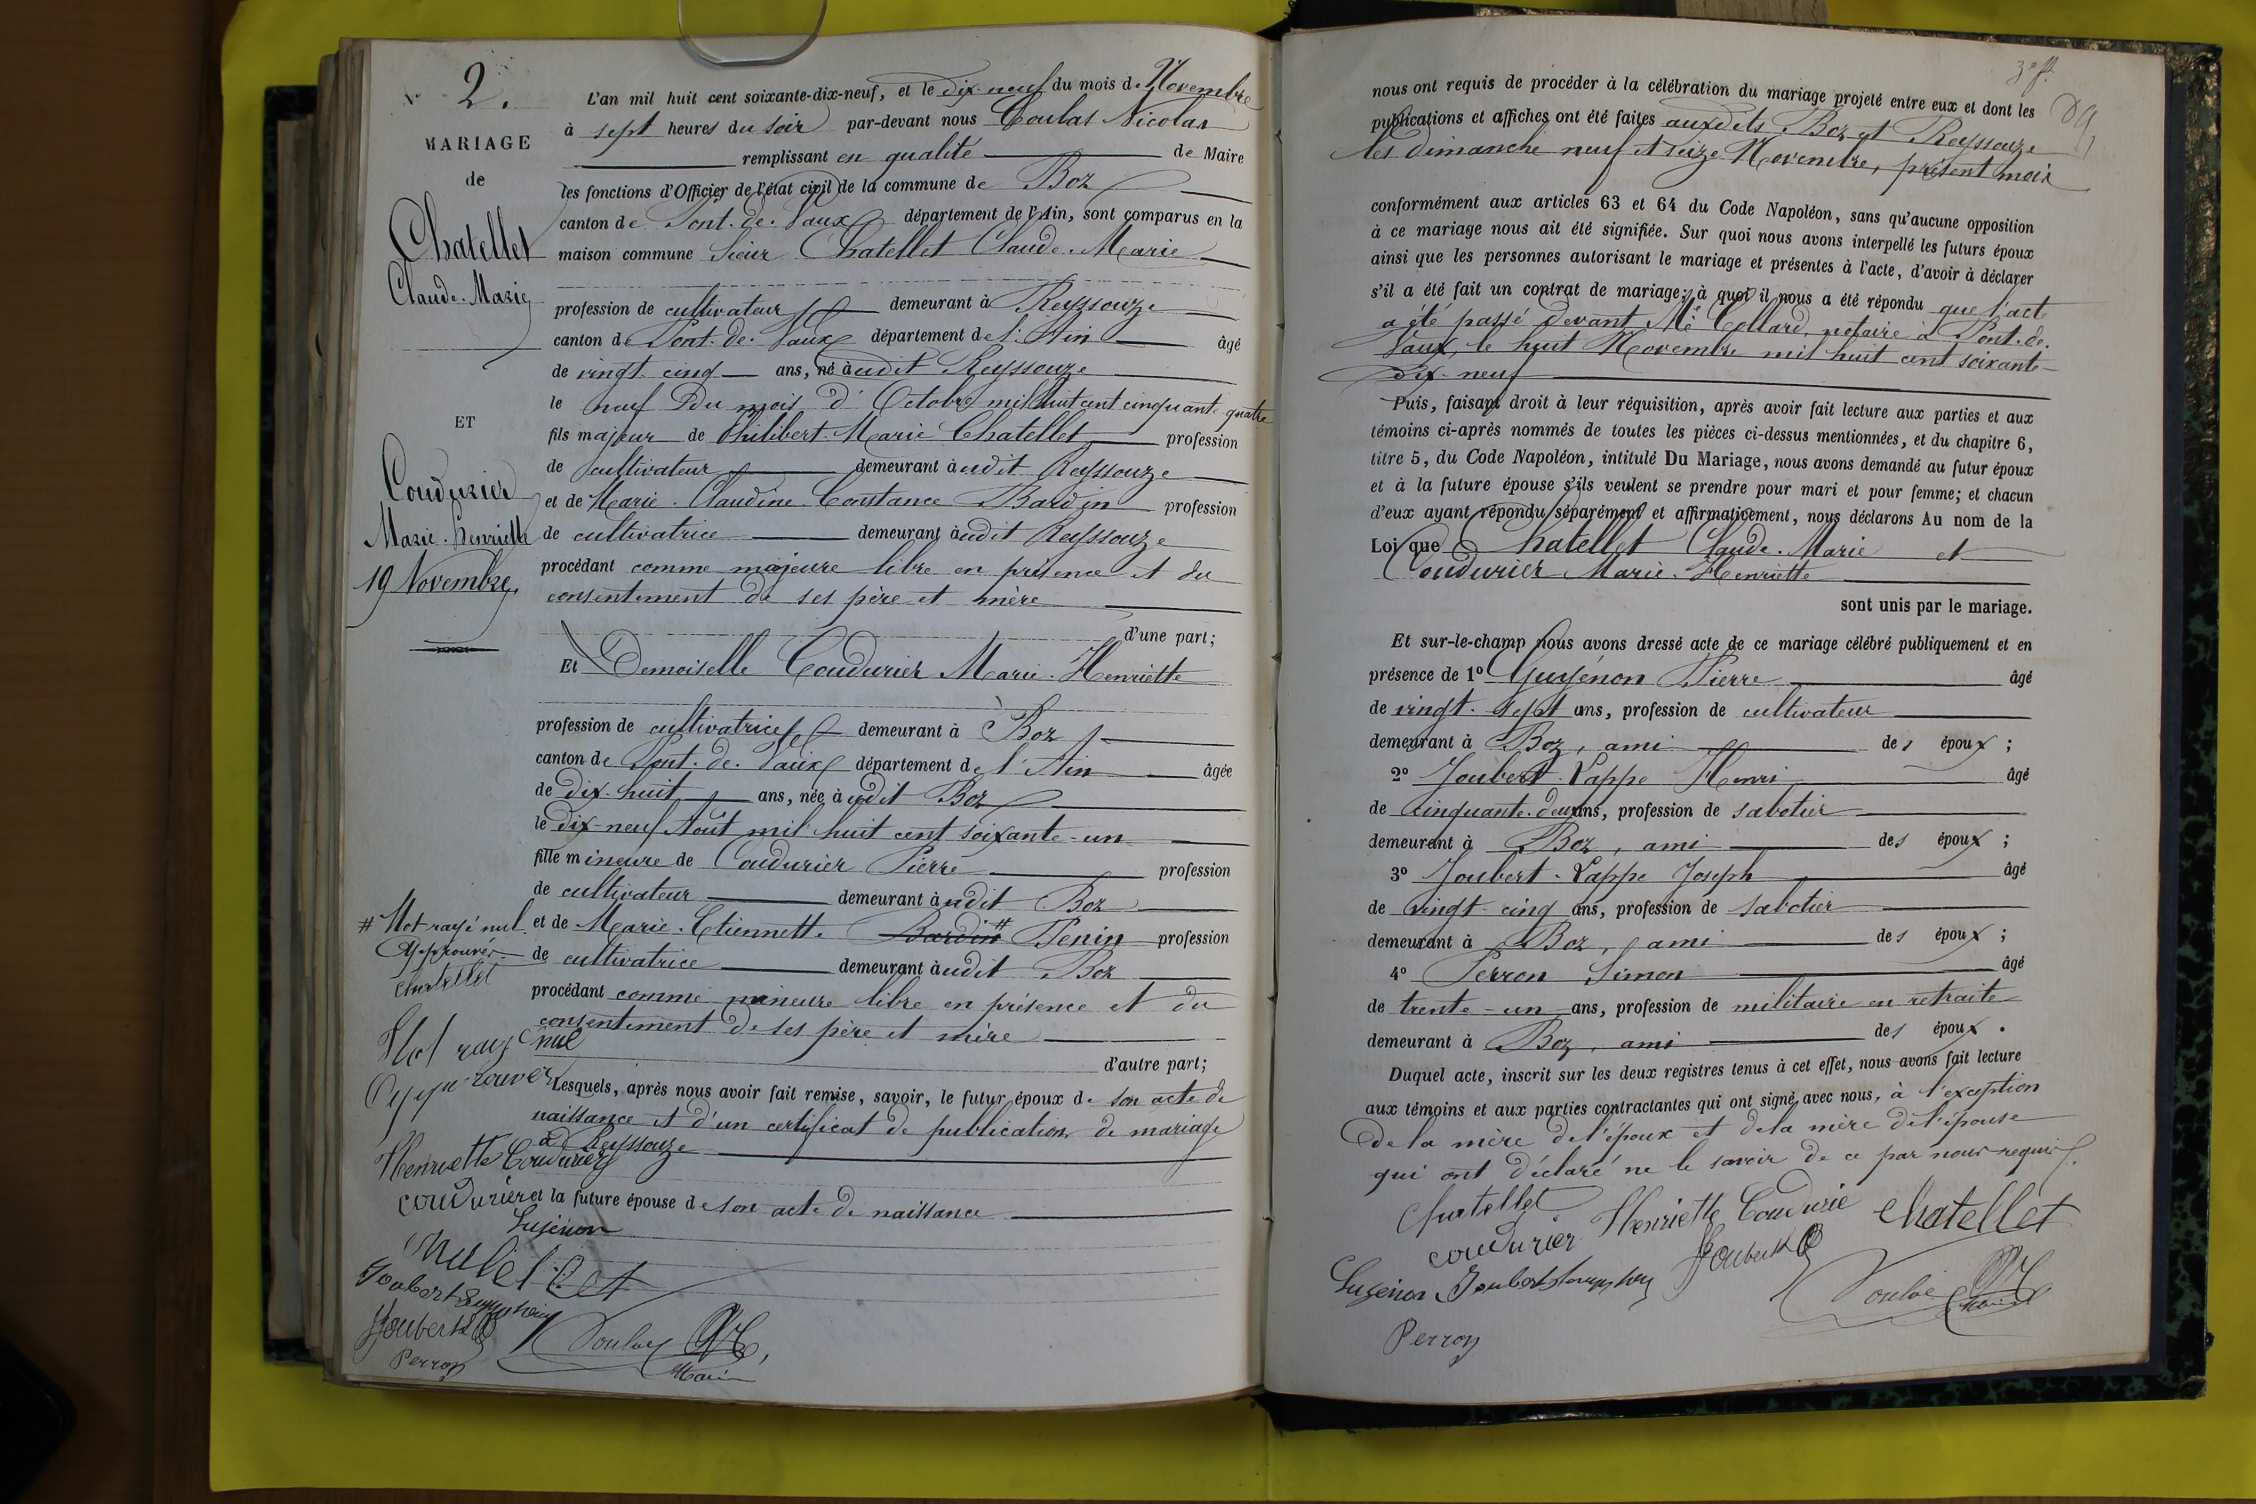 N° 2.
MARIAGE
de
Chatellet
Claude-Marie
ET
Coudurier
Marie-Henriette
19 Novembre
# Mot rayé nul
Approuvés
Chatellet
Mot rayé nul
Approuvés
Henriette Coudurier
coudurier
L'an mil huit cent soixante-dix-neuf, et le dix-neuf du mois de Novembre
à sept heures du soir par-devant nous Coulas Nicolas
remplissant en qualité de Maire
les fonctions d'Officier de l'état civil de la commune de Boz
canton de Pont-de-Vaux département de l'Ain, sont comparus en la
maison commune Sieur Chatellet Claude-Marie
profession de cultivateur demeurant à Reyssouze
canton de Pont-de-Vaux département de l'Ain âgé
de vingt cinq ans, né audit Reyssouze
le neuf du mois d'Octobre mil huit cent cinquante quatre
fils majeur de Philibert-Marie Chatellet profession
de cultivateur demeurant audit Reyssouze
et de Marie-Claudine Constance Bardin profession
de cultivatrice demeurant audit Reyssouze
procédant comme majeure libre en présence et du
consentement de ses père et mère
d'une part;
Et Demoiselle Coudurier Marie-Henriette
profession de cultivatrice demeurant à Boz
canton de Pont-de-Vaux département de l'Ain âgée
de dix-huit ans, née audit Boz
le dix-neuf Août mil huit cent soixante-un
fille mineure de Coudurier Pierre profession
de cultivateur demeurant audit Boz
et de Marie-Etiennette Bardin # Penin profession
de cultivatrice demeurant audit Boz
procédant comme mineure libre en présence et du
consentement de ses père et mère
d'autre part;
Lesquels, après nous avoir fait remise, savoir, le futur époux de son acte de
naissance et d'un certificat de publication de mariage
à Reyssouze
et la future épouse de son acte de naissance
Guyénon
Chatellet
Joubert
Joubert
Perron
Coulas
Maire
3e ft.
nous ont requis de procéder à la célébration du mariage projeté entre eux et dont les
publications et affiches ont été faites auxdits Boz et Reyssouze
les dimanche neuf et seize Novembre, présent mois
conformément aux articles 63 et 64 du Code Napoléon, sans qu'aucune opposition
à ce mariage nous ait été signifiée. Sur quoi nous avons interpellé les futurs époux
ainsi que les personnes autorisant le mariage et présentes à l'acte, d'avoir à déclarer
s'il a été fait un contrat de mariage; à quoi il nous a été répondu que l'acte
a été passé devant Me Collard, notaire à Pont-de-
Vaux, le huit Novembre mil huit cent soixante-
dix-neuf
Puis, faisant droit à leur réquisition, après avoir fait lecture aux parties et aux
témoins ci-après nommés de toutes les pièces ci-dessus mentionnées, et du chapitre 6,
titre 5, du Code Napoléon, intitulé Du Mariage, nous avons demandé au futur époux
et à la future épouse s'ils veulent se prendre pour mari et pour femme; et chacun
d'eux ayant répondu séparément et affirmativement, nous déclarons Au nom de la
Loi que Chatellet Claude-Marie et
Coudurier Marie-Henriette
sont unis par le mariage.
Et sur-le-champ nous avons dressé acte de ce mariage célébré publiquement et en
présence de 1° Guyénon Pierre âgé
de vingt-sept ans, profession de cultivateur
demeurant à Boz, ami des époux;
2° Joubert-Lappe Henri âgé
de cinquante-deux ans, profession de sabotier
demeurant à Boz, ami des époux;
3° Joubert-Lappe Joseph âgé
de vingt-cinq ans, profession de sabotier
demeurant à Boz, ami des époux;
4° Perron Simon âgé
de trente-un ans, profession de militaire en retraite
demeurant à Boz, ami des époux.
Duquel acte, inscrit sur les deux registres tenus à cet effet, nous avons fait lecture
aux témoins et aux parties contractantes qui ont signé avec nous, à l'exception
de la mère de l'époux et de la mère de l'épouse
qui ont déclaré ne le savoir de ce par nous requis.
Chatellet Henriette Coudurie chatellet
coudurier Joubert
Guyénon Joubert Coulas
Maire
Perron